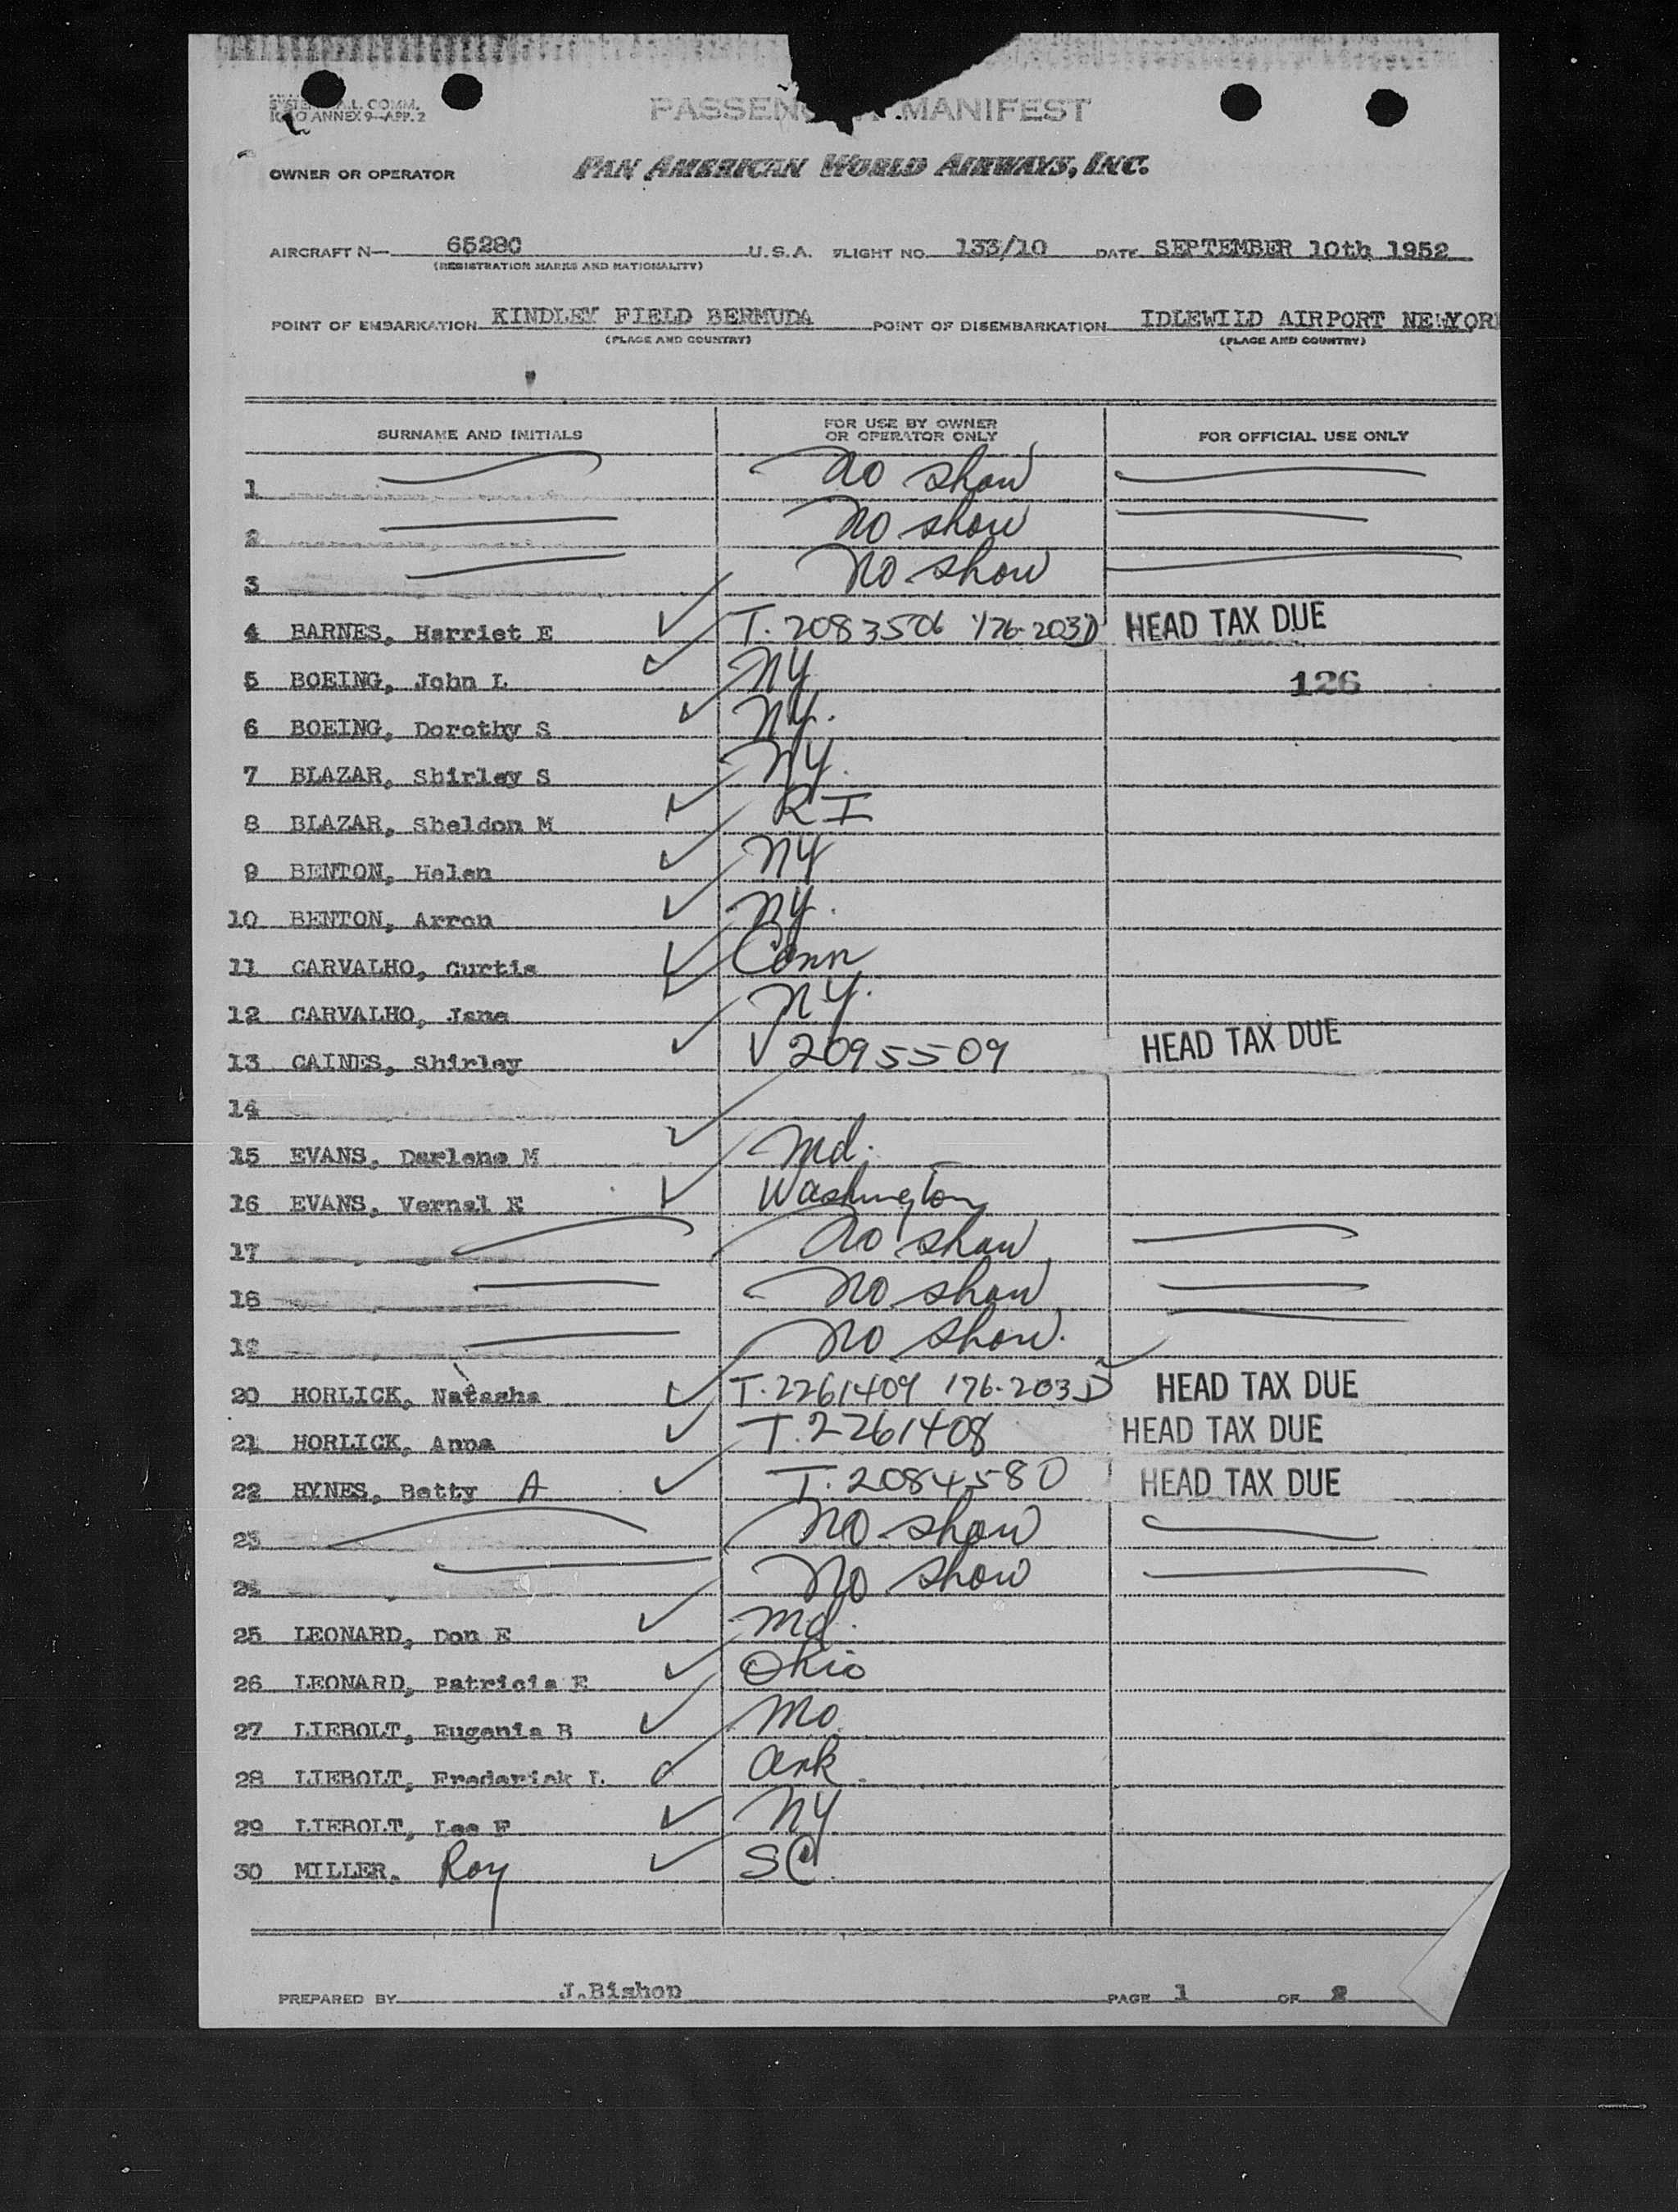 COMM.
ANNEX 9—APP. 2
PASSEN MANIFEST
OWNER OR OPERATOR PAN AMERICAN WORLD AIRWAYS, INC.
AIRCRAFT N— 65280 U.S.A. FLIGHT NO. 133/10 DATE SEPTEMBER 10th 1952
(REGISTRATION MARKS AND NATIONALITY)
POINT OF EMBARKATION KINDLEY FIELD BERMUDA POINT OF DISEMBARKATION IDLEWILD AIRPORT NEWYOR
(PLACE AND COUNTRY) (PLACE AND COUNTRY)
SURNAME AND INITIALS FOR USE BY OWNER OR OPERATOR ONLY FOR OFFICIAL USE ONLY
1 No show
2 No show
3 No show
4 BARNES, Harriet E T. 2083506 176-203D HEAD TAX DUE
5 BOEING, John L NY 126
6 BOEING, Dorothy S NY.
7 BLAZAR, Shirley S NY.
8 BLAZAR, Sheldon M RI
9 BENTON, Helen NY
10 BENTON, Arron NY.
11 CARVALHO, Curtis Conn
12 CARVALHO, Jane NY.
13 CAINES, Shirley V 2095509 HEAD TAX DUE
14
15 EVANS, Darlene M Md.
16 EVANS, Vernal E Washington
17 No show
18 No show
19 No show.
20 HORLICK, Natasha T. 2261409 176-203D HEAD TAX DUE
21 HORLICK, Anna T. 2261408 HEAD TAX DUE
22 HYNES, Betty A T. 2084580 HEAD TAX DUE
23 No show
24 No show
25 LEONARD, Don E Md.
26 LEONARD, Patricia E Ohio
27 LIEBOLT, Eugenia B Mo.
28 LIEBOLT, Frederick L Ark.
29 LIEBOLT, Lee F NY
30 MILLER. Roy SC.
PREPARED BY J.Bishop PAGE 1 OF 2